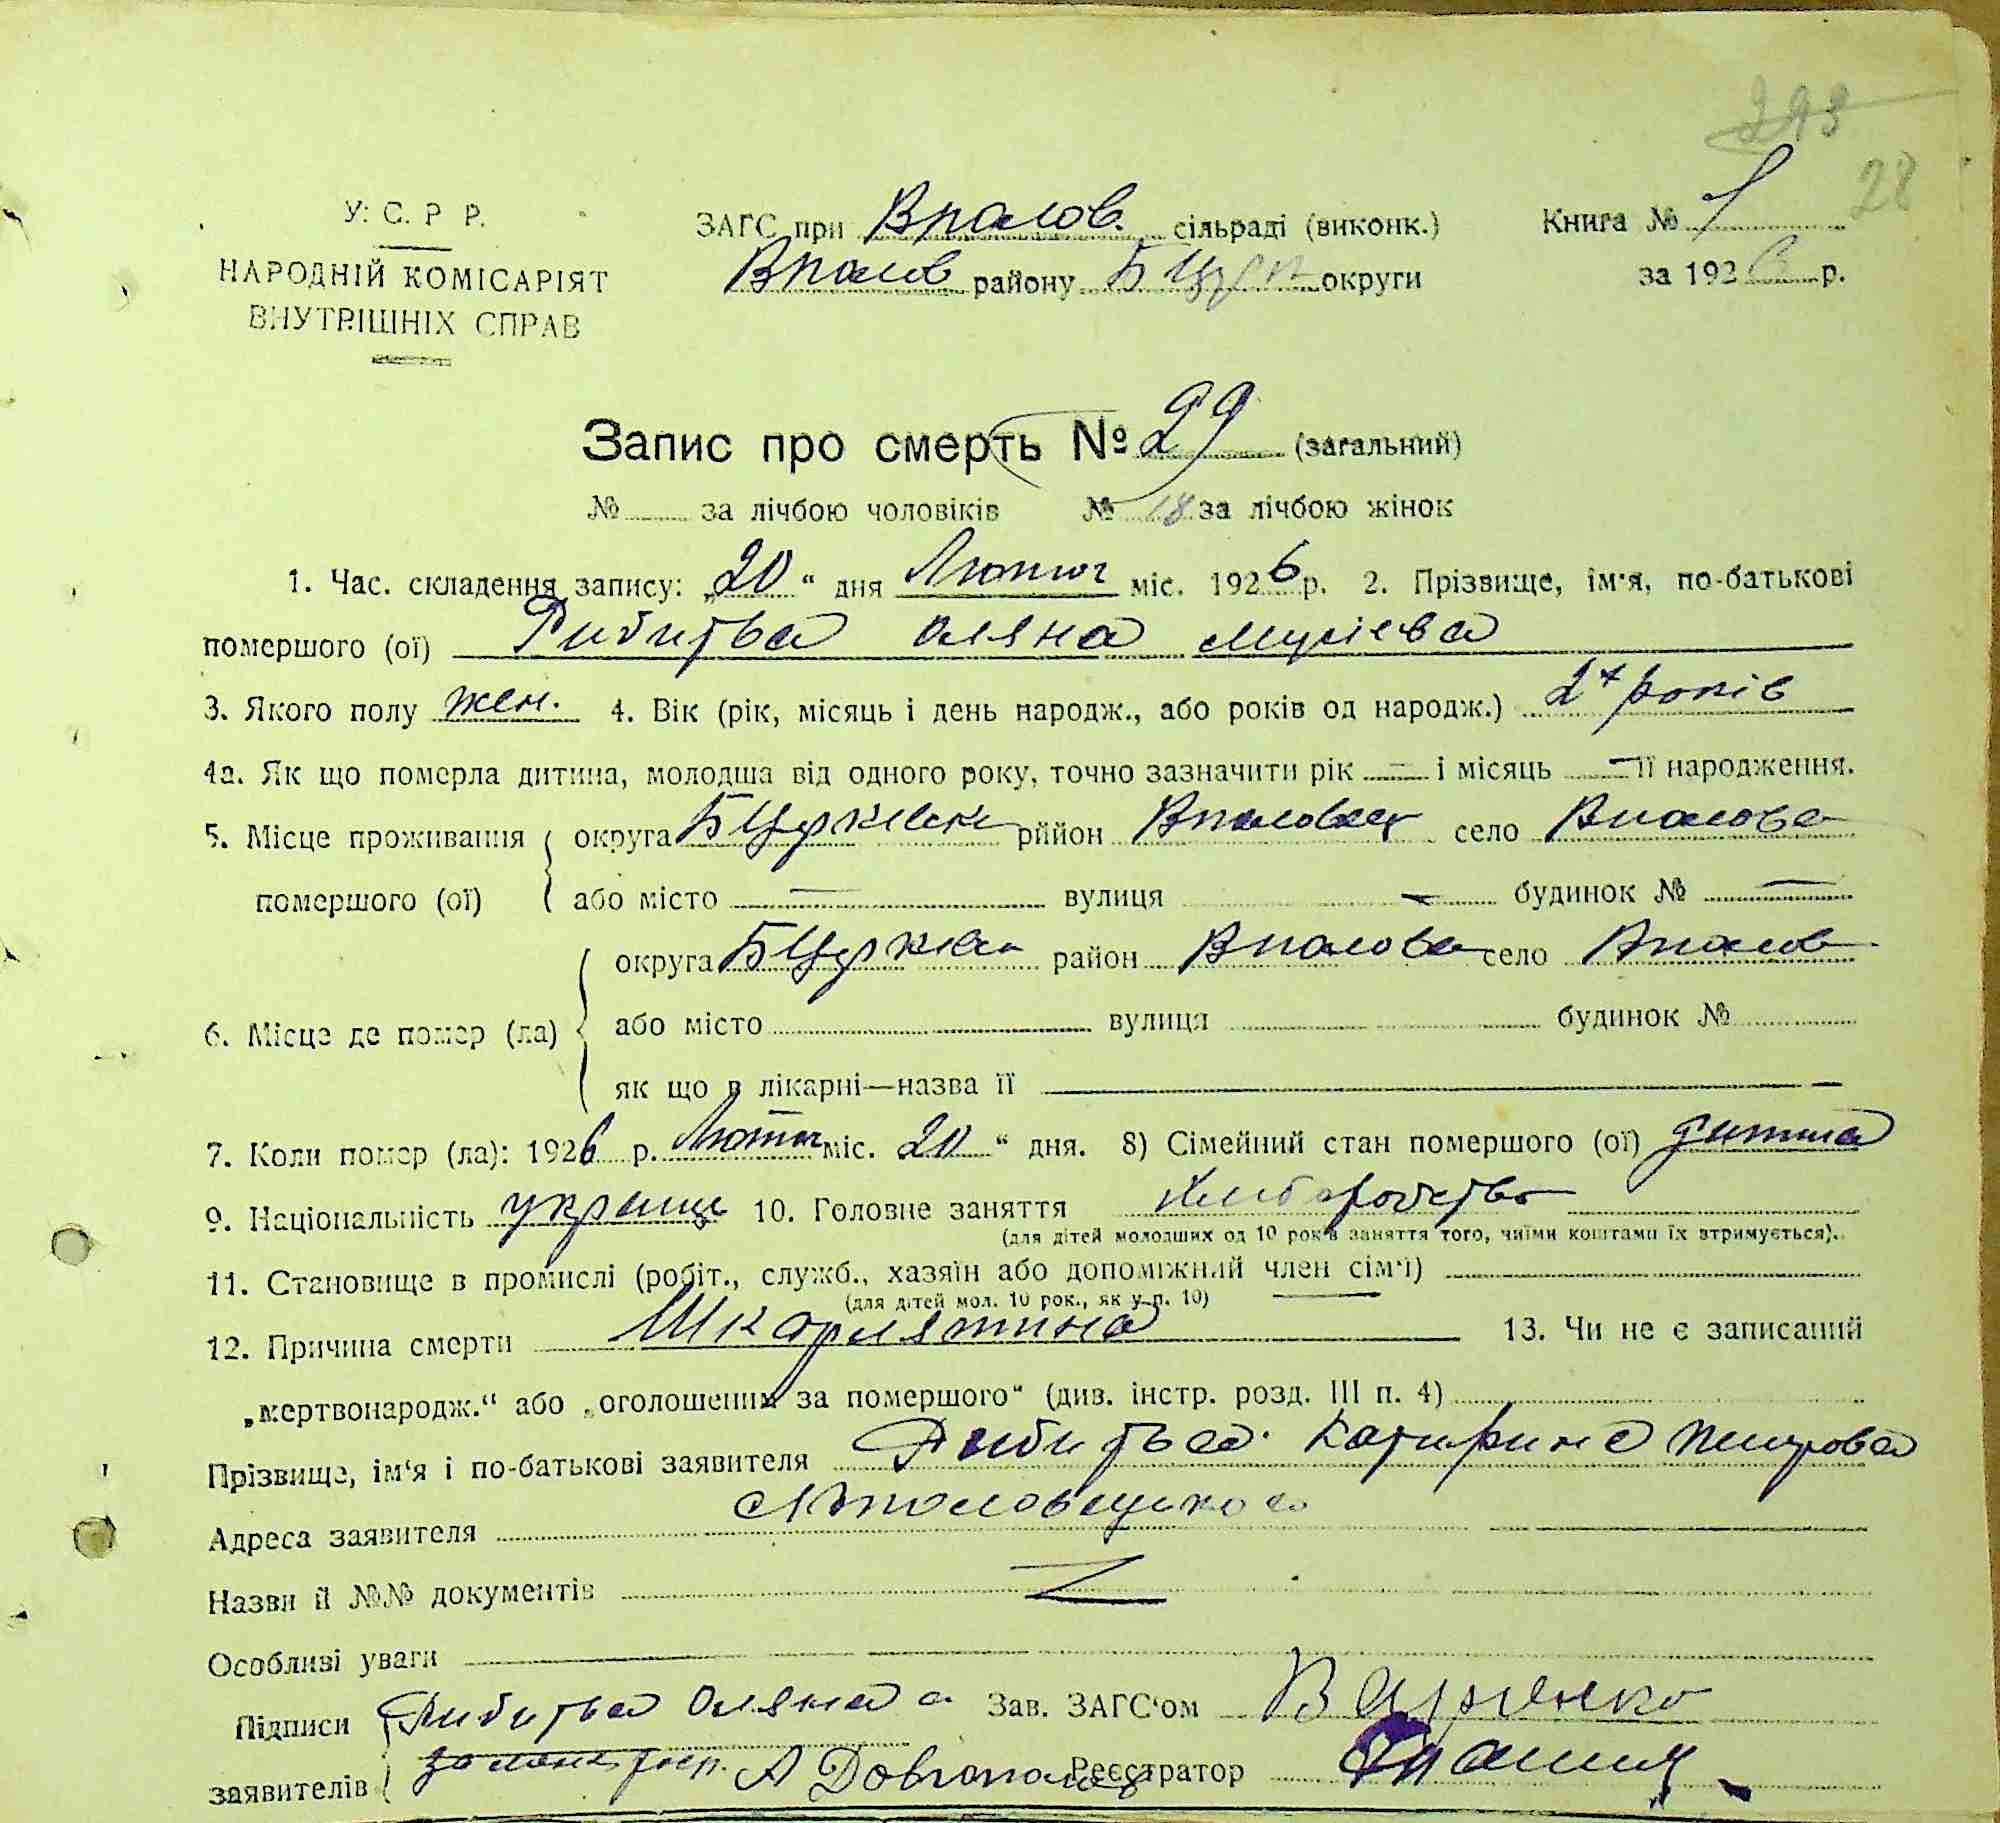 293
28
У. С. Р Р.
НАРОДНІЙ КОМІСАРІЯТ
ВНУТРІШНІХ СПРАВ
ЗАГС при Впалов. сільраді (виконк.)
Впалов району БЦерк округи
Книга № 1
за 1926 р.
Запис про смерть № 29 (загальний)
№ за лічбою чоловіків № 18 за лічбою жінок
1. Час. складення запису: „20“ дня Лютог міс. 1926 р. 2. Прізвище, ім'я, по-батькові
помершого (ої) Рибитва Оляна Мусієва
3. Якого полу жен. 4. Вік (рік, місяць і день народж., або років од народж.) років
4а. Як що померла дитина, молодша від одного року, точно зазначити рік — і місяць — її народження.
5. Місце проживання помершого (ої) { округа БЦеркевск рййон село
або місто — вулиця — будинок № —
6. Місце де помер (ла) { округа БЦеркев район село
або місто вулиця будинок №
як що в лікарні—назва її —
7. Коли помер (ла): 1926 р. Лютог міс. 20“ дня. 8) Сімейний стан помершого (ої) дитина
9. Національність україц 10. Головне заняття хлиборобство
(для дітей молодших од 10 років заняття того, чиїми коштами їх втримується).
11. Становище в промислі (робіт., служб., хазяїн або допоміжний член сім'ї)
(для дітей мол. 10 рок., як у п. 10) —
12. Причина смерти Шкарлятина 13. Чи не є записаний
„мертвонародж.“ або „оголошеним за помершого“ (див. інстр. розд. III п. 4)
Прізвище, ім'я і по-батькові заявителя Рибитва Катирина Петрова
Адреса заявителя
Назви й №№ документів
Особливі уваги
Підписи Рибитва Оляна а Зав. ЗАГС'ом
заявителів А Довгополов Реєстратор